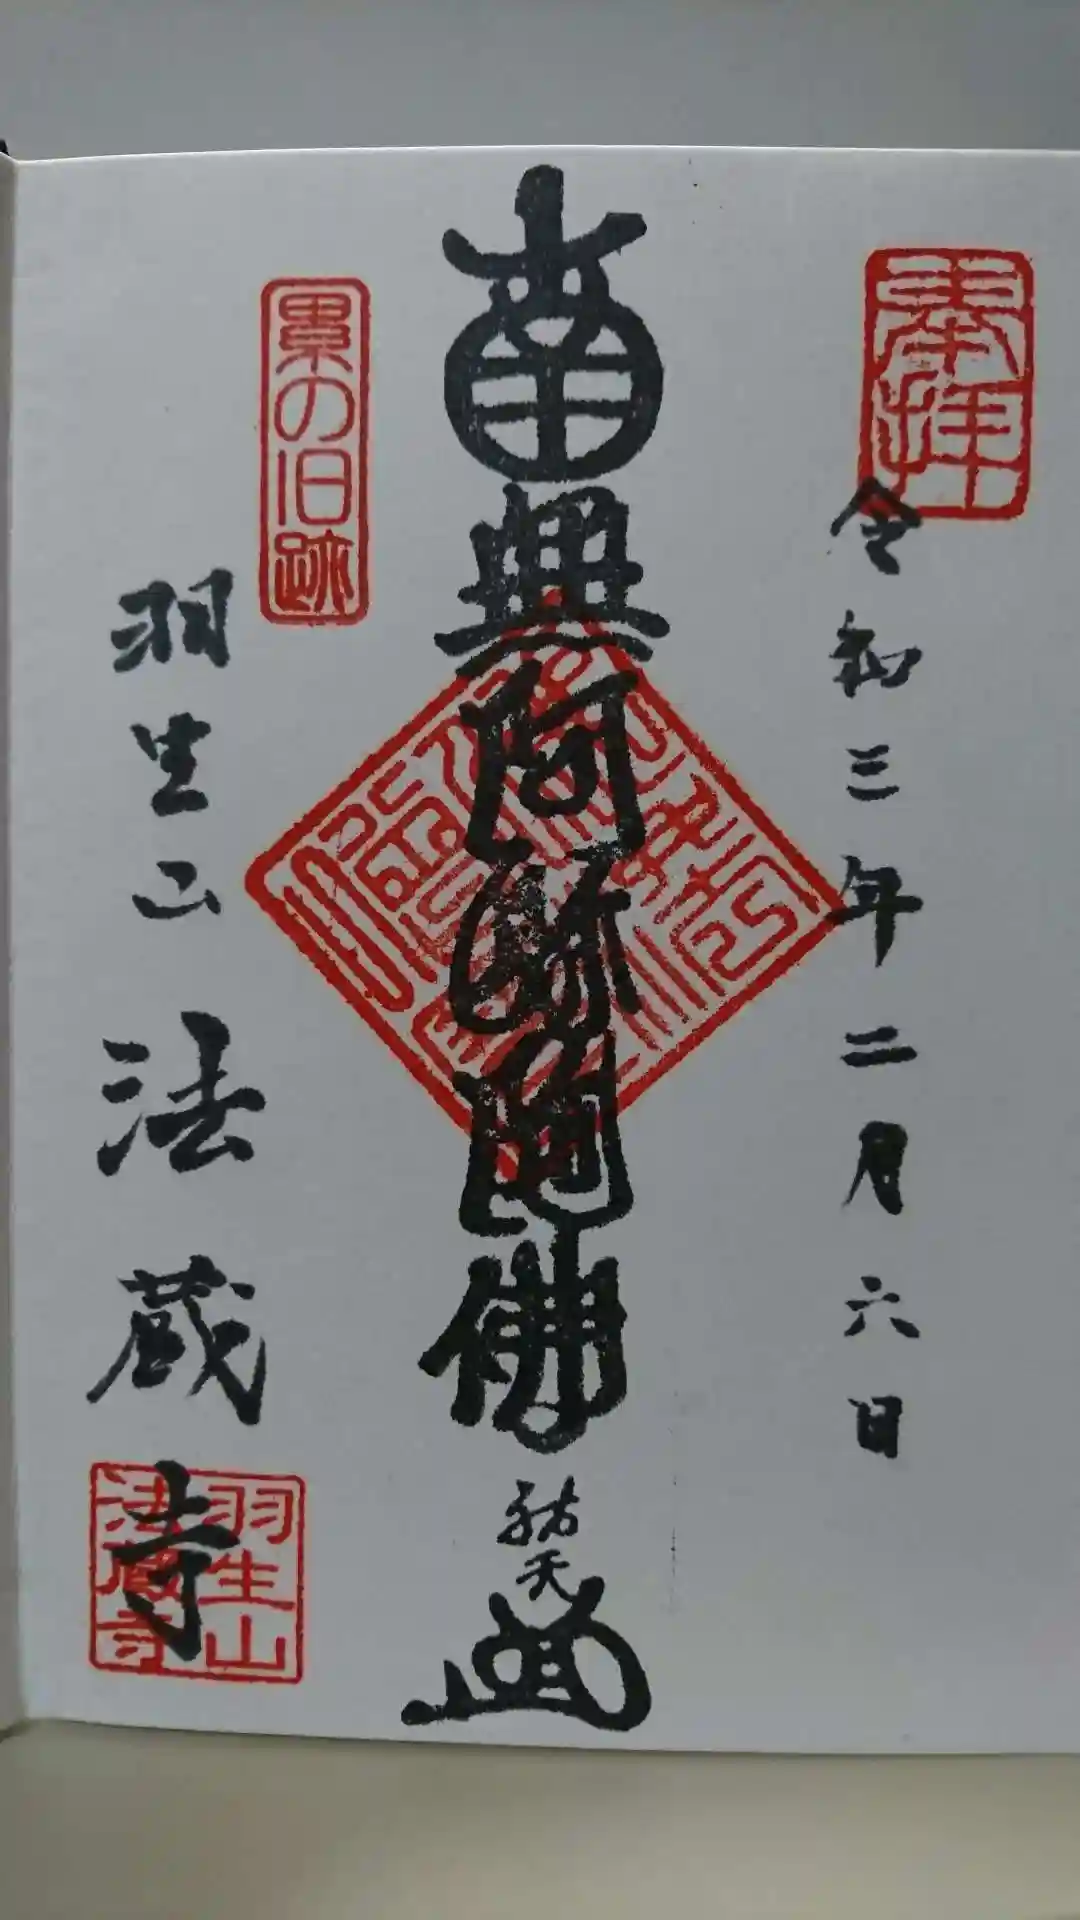 奉拝
令和三年二月六日
南無阿弥陀佛
祐天
累の旧跡
羽生山 法蔵寺
羽生山
法蔵寺